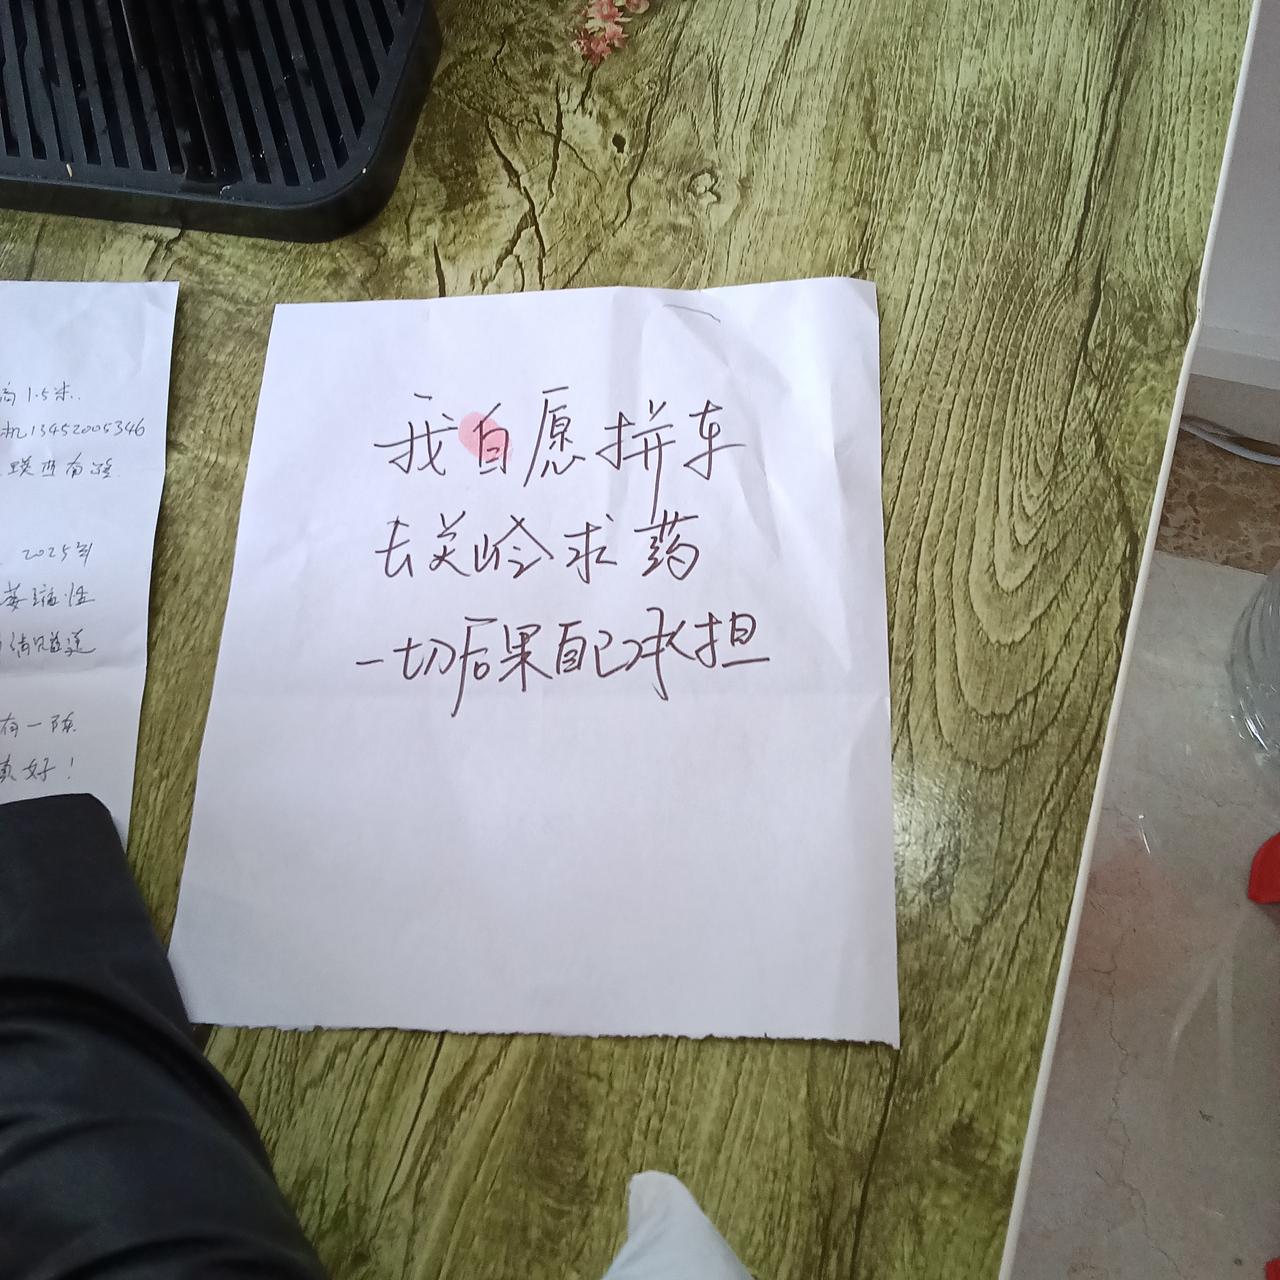 高1.5米.
机13452005346
南路
2025年
萎缩性
有一阵
真好！
我自愿拼车
去关岭求药
一切后果自己承担